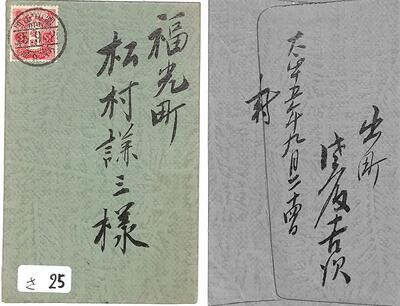 福光町
松村謙三様
さ 25
出町
吉次
大正五年九月二十